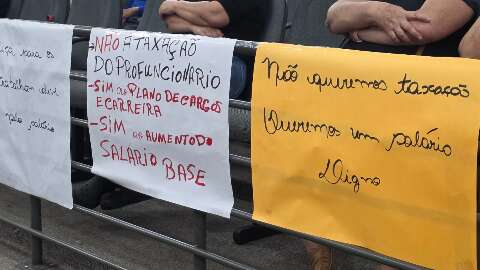 para os
trabalham
pelo salário
-NÃO A TAXAÇÃO
DO PROFUNCIONARIO
-SIM AO PLANO DE CARGOS
E CARREIRA
-SIM AO AUMENTO DO
SALARIO BASE
Não queremos taxação
Queremos um salário
Digno